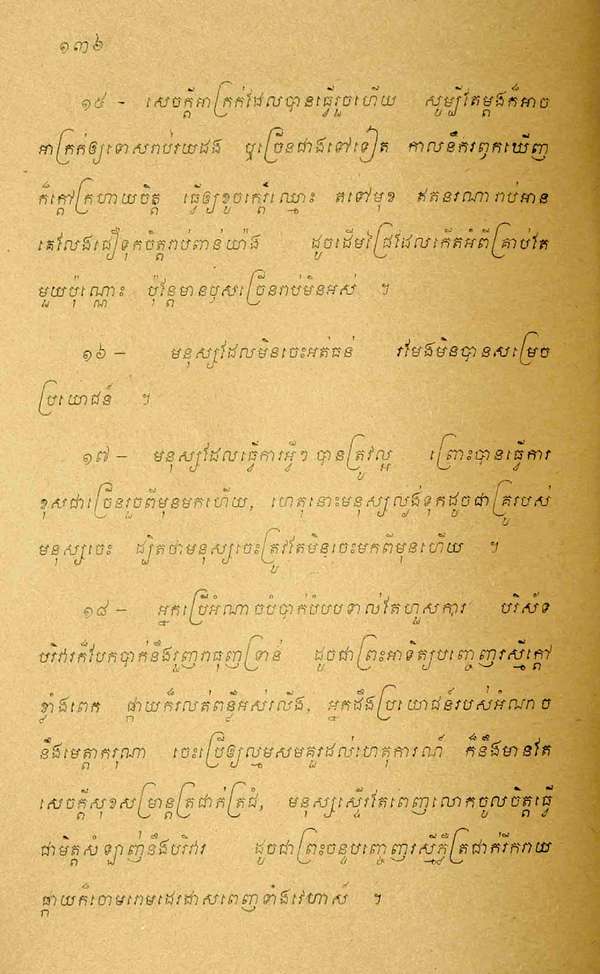 ១៣៦
១៥ - សេចក្ដីអាក្រក់ដែលបានធ្វើរួចហើយ សូម្បីតែម្ដងក៏អាច
អាក្រក់ឲ្យទោសរាប់រយដង ឬច្រើនជាងទៅទៀត កាលនឹករឭកឃើញ
ក៏ក្ដៅក្រហាយចិត្ត ធ្វើឲ្យខូចកេរ្តិ៍ឈ្មោះ តទៅមុខ ឥតនរណារាប់អាន
គេលែងជឿទុកចិត្តរាប់ពាន់យ៉ាង ដូចដើមជ្រៃដែលកើតអំពីគ្រាប់តែ
មួយប៉ុណ្ណោះ ប៉ុន្តែមានឫសច្រើនរាប់មិនអស់ ។
១៦ - មនុស្សដែលមិនចេះអត់ធន់ រមែងមិនបានសម្រេច
ប្រយោជន៍ ។
១៧ - មនុស្សដែលធ្វើការអ្វីៗបានត្រូវល្អ ព្រោះបានធ្វើការ
ខុសជាច្រើនរួចពីមុនមកហើយ, ហេតុនោះមនុស្សល្ងង់ទុកដូចជាគ្រូរបស់
មនុស្សចេះ ដ្បិតថាមនុស្សចេះត្រូវតែមិនចេះមកពីមុនហើយ ។
១៨ - អ្នកប្រើអំណាចបំបាក់បំបបទាល់តែហួសការ បរិស័ទ
បរិវារក៏បែកបាក់នឹងរួញរាធុញទ្រាន់ ដូចជាព្រះអាទិត្យបញ្ចេញរស្មីក្ដៅ
ខ្លាំងពេក ផ្កាយក៏រលត់ពន្លឺអស់រលីង, អ្នកដឹងប្រយោជន៍របស់អំណាច
នឹងមេត្តាករុណា ចេះប្រើឲ្យល្មមសមគួរដល់ហេតុការណ៍ ក៏នឹងមានតែ
សេចក្ដីសុខសម្រាន្តត្រជាក់ត្រជំ, មនុស្សស្ទើរតែពេញលោកចូលចិត្តធ្វើ
ជាមិត្តសំឡាញ់នឹងបរិវារ ដូចជាព្រះចន្ទបញ្ចេញរស្មីភ្លឺត្រជាក់រីករាយ
ផ្កាយក៏ចោមរោមដេរដាសពេញទាំងវេហាស៍ ។